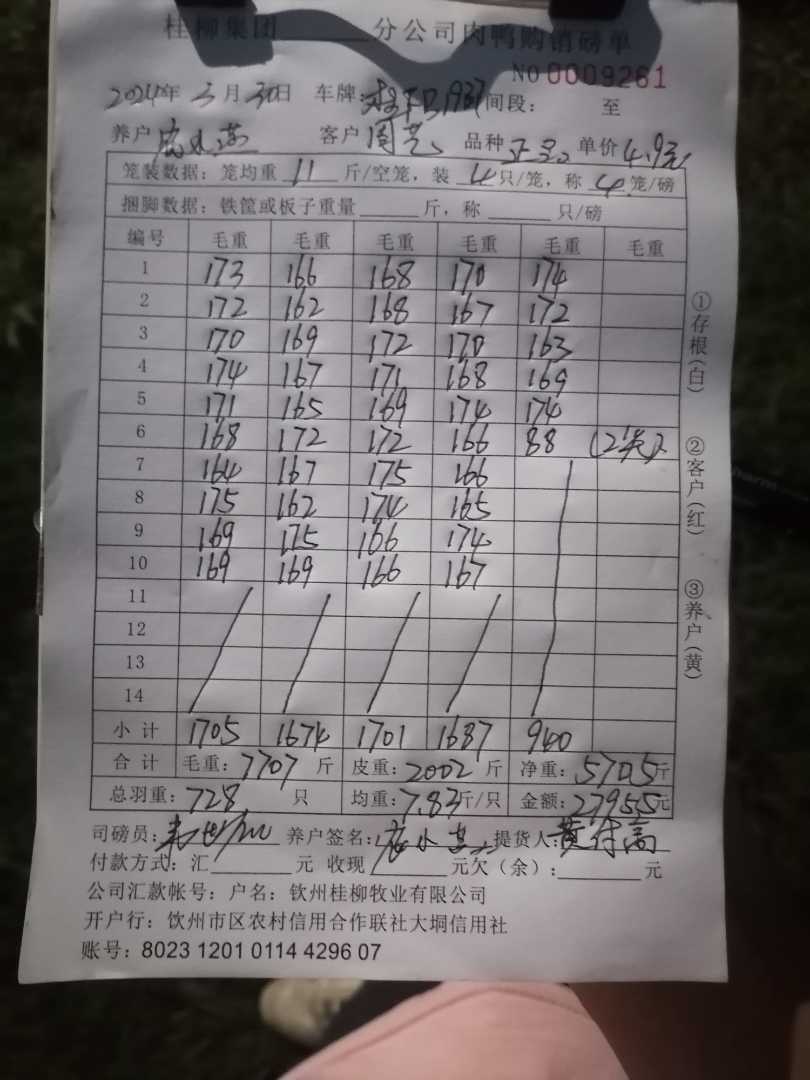 桂柳集团 分公司肉鸭购销磅单
NO 0009261
2024年 3月 30日 车牌: 1937 间段: 至
养户 客户 周 品种 单价 4.9元
笼装数据: 笼均重 11 斤/空笼, 装 4 只/笼, 称 4 笼/磅
捆脚数据: 铁筐或板子重量 斤, 称 只/磅
编号 毛重 毛重 毛重 毛重 毛重 毛重
1 173 166 168 170 174
2 172 162 168 167 172
3 170 169 172 170 163
4 174 167 171 168 169
5 171 165 169 174 174
6 168 172 172 166 88 (2笼)
7 164 167 175 166
8 175 162 174 165
9 169 175 166 174
10 169 169 166 167
11
12
13
14
小计 1705 1674 1701 1687 940
合计 毛重: 7707 斤 皮重: 2002 斤 净重: 5705 斤
总羽重: 728 只 均重: 7.83 斤/只 金额: 27955 元
司磅员: 养户签名: 提货人: 黄
付款方式: 汇 元 收现 元欠(余): 元
公司汇款帐号: 户名: 钦州桂柳牧业有限公司
开户行: 饮州市区农村信用合作联社大垌信用社
账号: 8023 1201 0114 4296 07
①存根(白)
②客户(红)
③养户(黄)